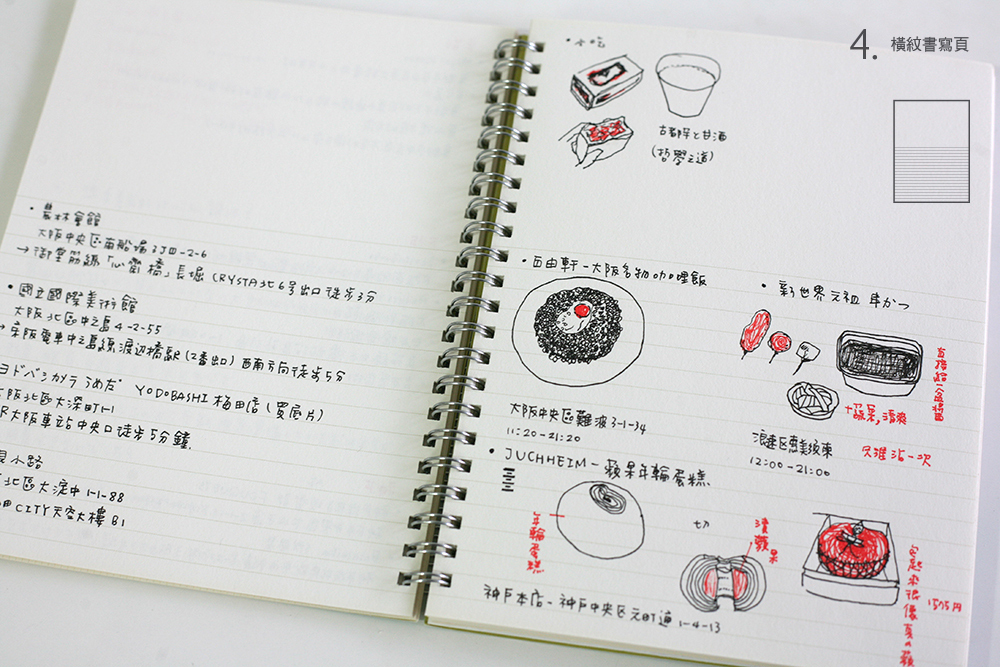 4. 橫紋書寫頁
・農林會館
大阪中央区南船場3丁目-2-6
→御堂筋線「心齋橋」長堀CRYSTA北6号出口徒步3分
・國立國際美術館
大阪北區中之島4-2-55
京阪電車中之島線渡辺橋駅(2番出口)西南方向徒步5分
ヨドバシカメラうめだ YODOBASHI 梅田店(買底片)
大阪北區大深町1-1
JR大阪車站中央口徒步5分鐘.
小路
北區大淀中1-1-88
CITY天空大樓 B1
・小吃
と甘酒
(哲學之道)
・自由軒-大阪名物咖哩飯
大阪中央區難波3-1-34
11:20-21:20
・新世界元祖 串かつ
直接給一盆醬
+蔬菜,清爽
浪速区恵美須東
只准沾一次
12:00-21:00
・JUCHHEIM-蘋果年輪蛋糕
年輪蛋糕
切
漬蘋果
包起來很像真的蘋
1575円
神戶本店-神戶中央区元町通1-4-13